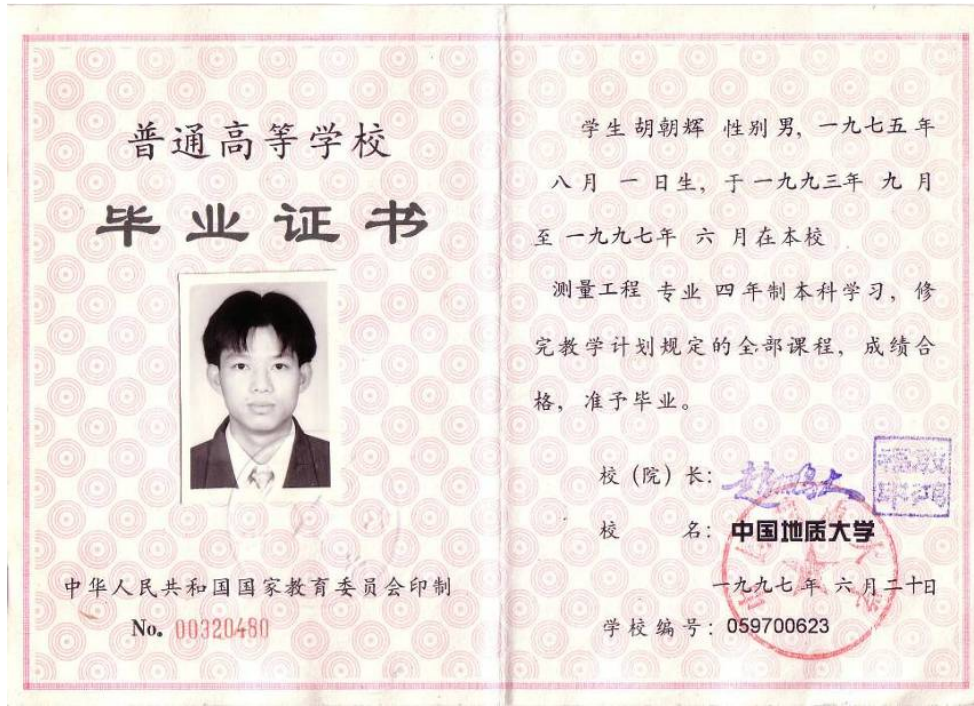 普通高等学校
毕业证书
中华人民共和国国家教育委员会印制
No. 00320480
学生 胡朝辉 性别 男, 一九七五 年
八 月 一 日生, 于 一九九三年 九 月
至 一九九七年 六 月在本校
测量工程 专业 四 年制本科学习, 修
完教学计划规定的全部课程, 成绩合
格, 准予毕业。
校 (院) 长: 赵鹏大
校 名: 中国地质大学
一九九七 年 六 月 二十日
学校编号: 059700623